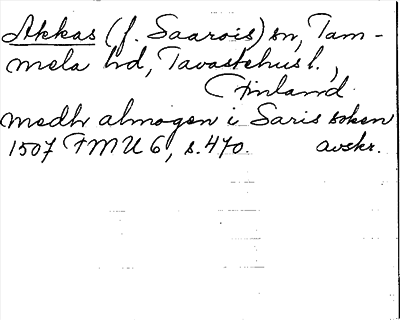 Akkas (f. Saarois) sn, Tam-
mela hd, Tavastehus l.,
Finland
medh almogen i Saris soken
1507 FMU 6, s. 470. avskr.